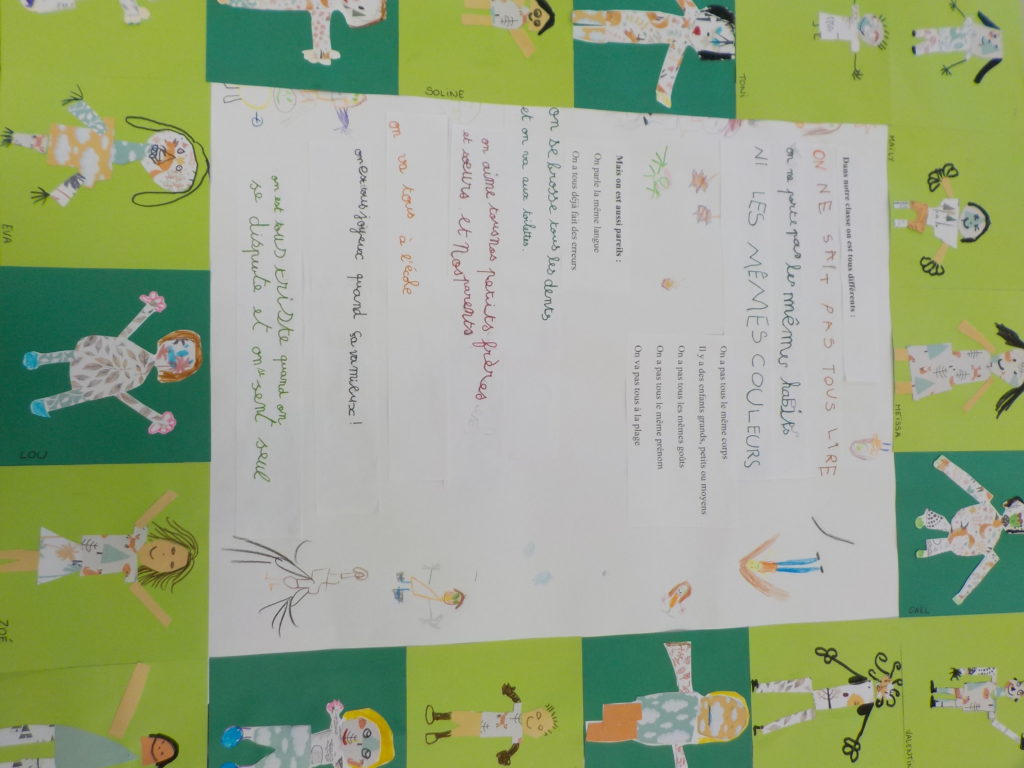 Dans notre classe on est tous différents :
ON NE SAIT PAS TOUS LIRE
on ne porte pas les mêmes habits
NI LES MÊMES COULEURS
On a pas tous le même corps
Il y a des enfants grands, petits ou moyens
On a pas tous les mêmes goûts
On a pas tous le même prénom
On va pas tous à la plage
Mais on est aussi pareils :
On parle la même langue
On a tous déjà fait des erreurs
on se brosse tous les dents
et on va aux toilettes.
on aime tous nos petits frères
et sœurs et Nos parents
on va tous à l'école
on est tous joyeux quand sa va mieux !
on est tous triste quand on
se dispute et on se sent seul
SOLINE
TONI
MAILLY
MEÏSSA
GAËL
VALENTIN
EVA
LOU
ZOÉ